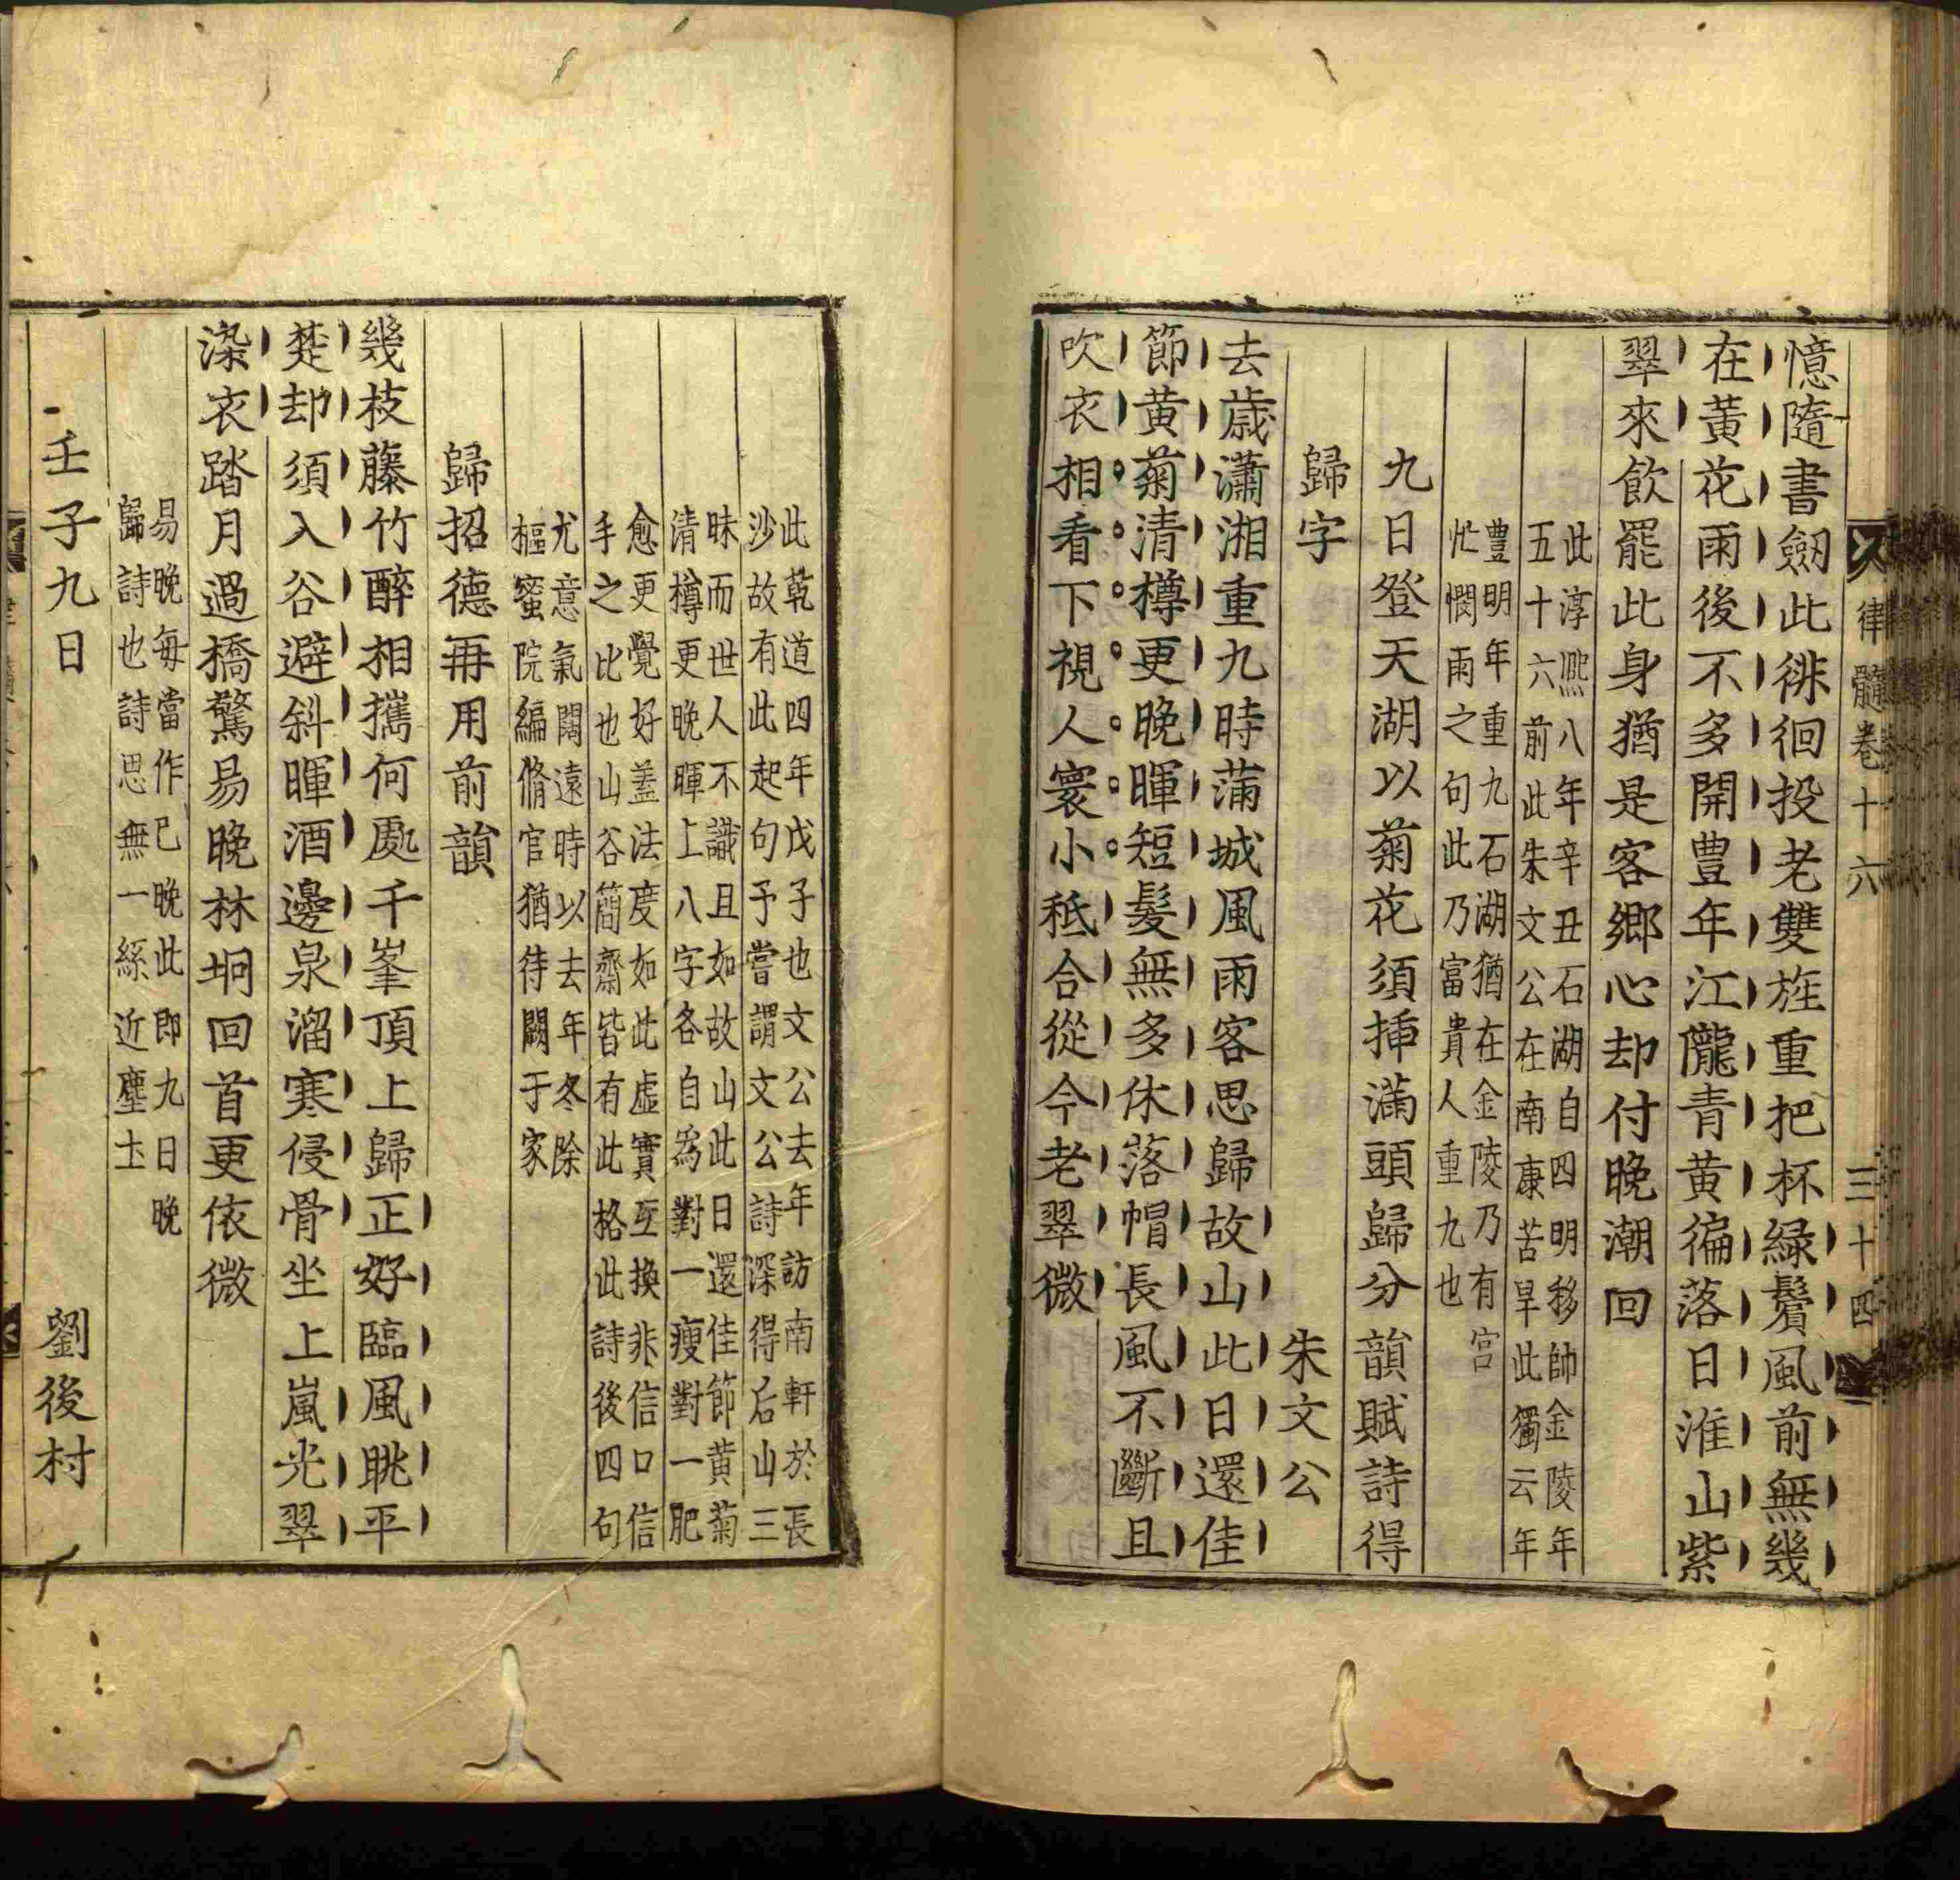 律髓卷十六
三十四
憶隨書劒此徘徊投老雙旌重把杯緑鬢風前無幾
在黃花雨後不多開豊年江隴青黄徧落日淮山紫
翠來飲罷此身猶是客郷心却付晩潮回
此淳熈八年辛丑石湖自四明移帥金陵年
五十六前此朱文公在南康苦旱此獨云年
豊明年重九石湖猶在金陵乃有宫
忙憫雨之句此乃富貴人重九也
九日登天湖以菊花須挿滿頭歸分韻賦詩得
歸字
朱文公
去歳瀟湘重九時蒲城風雨客思歸故山此日還佳
節黄菊清樽更晩暉短髮無多休落帽長風不斷且
吹衣相看下視人寰小秪合從今老翠微
此乾道四年戊子也文公去年訪南軒於長
沙故有此起句予嘗謂文公詩深得后山三
昧而世人不識且如故山此日還佳節黄菊
清樽更晩暉上八字各自為對一瘦對一肥
愈更覺好盖法度如此虚實互換非信口信
手之比也山谷簡齋皆有此格此詩後四句
尤意氣闊遠時以去年冬除
樞蜜院編脩官猶待闕于家
歸招德再用前韻
幾枝藤竹醉相攜何處千峯頂上歸正好臨風眺平
楚却須入谷避斜暉酒邊泉溜寒侵骨坐上嵐光翠
染衣踏月過橋驚易晩林坰回首更依微
易晩每當作已晩此即九日晩
歸詩也詩思無一絲近塵土
壬子九日
劉後村